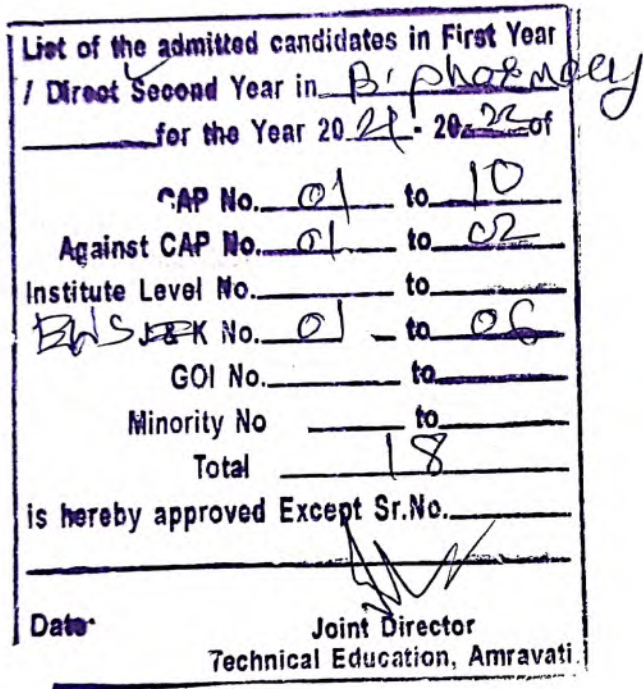 List of the admitted candidates in First Year
/ Direct Second Year in B. pharmacy
for the Year 2021 - 2022 of
CAP No. 01 to 10
Against CAP No. 01 to 02
Institute Level No. to
EWS J & K No. 01 to 06
GOI No. to
Minority No to
Total 18
is hereby approved Except Sr.No.
Date
Joint Director
Technical Education, Amravati.